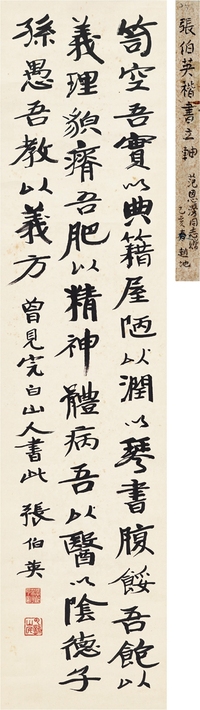 笥空吾實以典籍屋陋以潤以琴書腹餒吾飽以
義理貌瘠吾肥以精神體病吾以醫以陰德子
孫愚吾教以義方
曾見完白山人書此
張伯英
張伯英楷書立軸